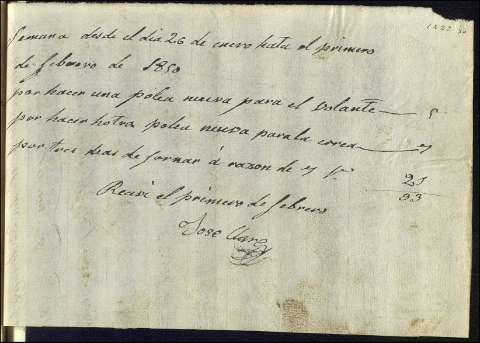 Semana desde el dia 26 de enero hata el primero
de febrero de 1850
por hacer una polea nueva para el bolante
por hacer hotra polea nueva para la correa
por tres dias de jornar á razon de 7 21
33
Recivi el primero de febrero
Jose